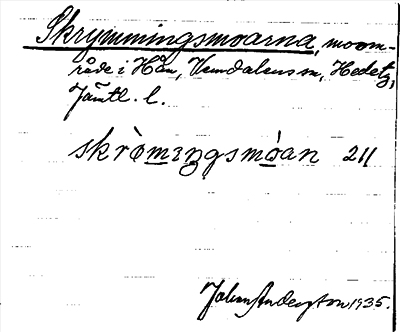 Skrymmingsmoarna, moom-
råde i Hån, Vemdalens sn, Hedetg,
Jämtl. l.
skrò̀mıŋgsmóan 211
Johan Anderston 1935.